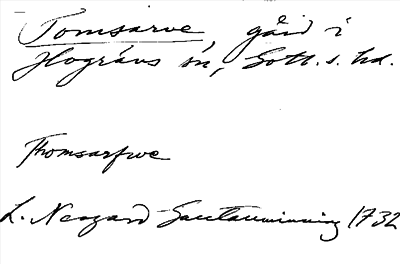 Tomsarve, gård i
Hogräns sn, Gotl. s. hd.
Thomsarfwe
L. Neogard Gautauminning 1732